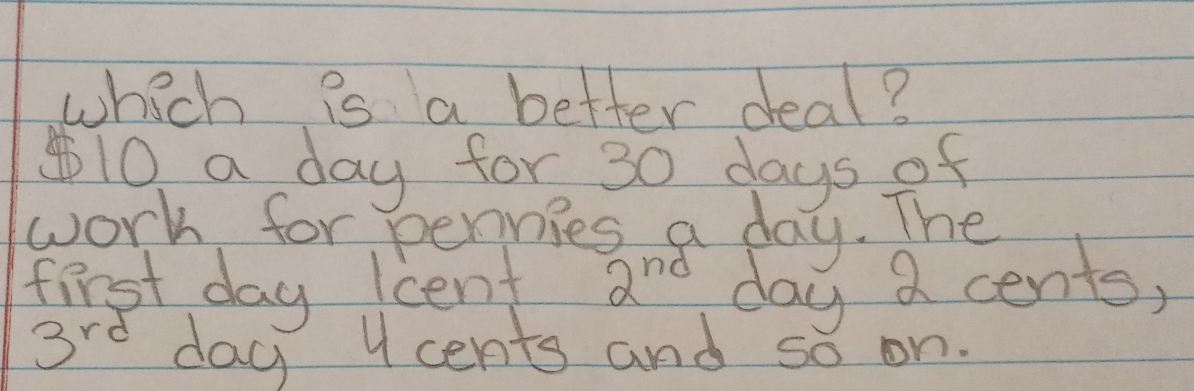 which is a better deal?
$10 a day for 30 days of
work for pennies a day. The
first day 1cent 2nd day 2 cents,
3rd day 4 cents and so on.